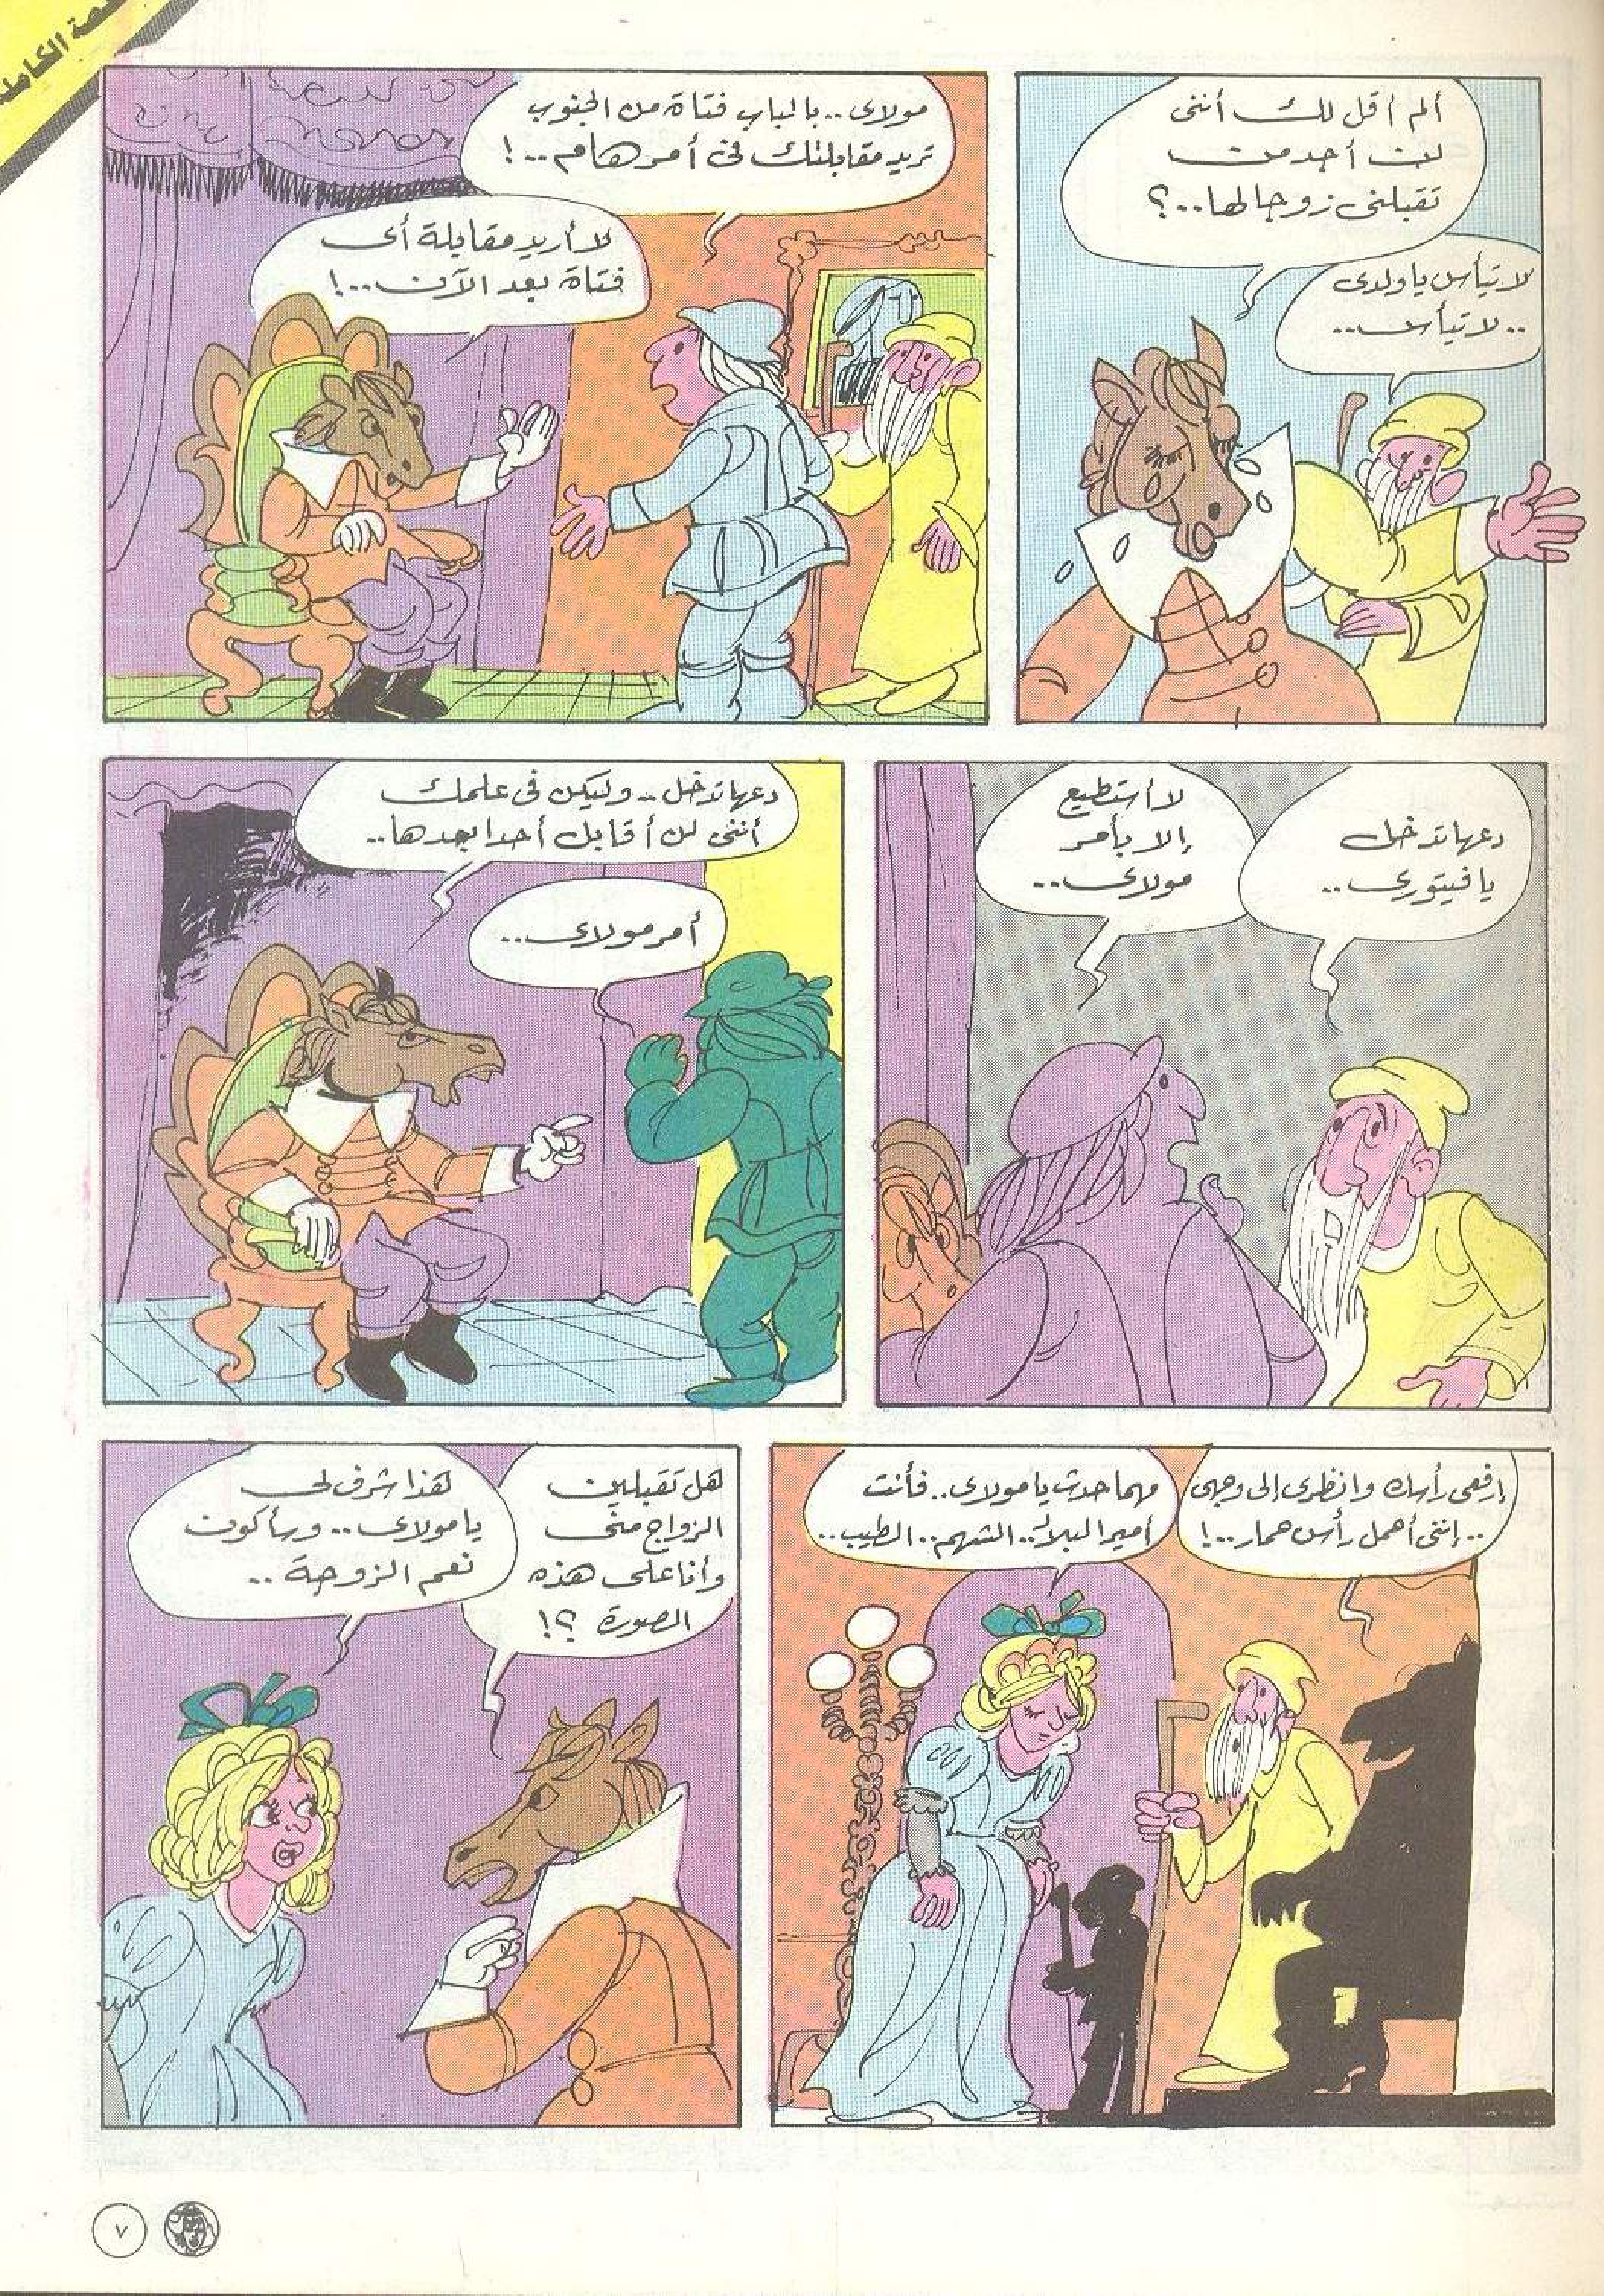 القصة الكاملة
ألم أقل لك أننى
لن أجد من
تقبلنى زوجا لها..؟
لا تيأس يا ولدى
..لا تيأس..
مولاى..بالباب فتاة من الجنوب
تريد مقابلتك فى أمر هام..!
لا أريد مقابلة أى
فتاة بعد الآن..!
دعها تدخل
يا فيتورى..
لا أستطيع
إلا بأمر
مولاى..
دعها تدخل.. وليكن فى علمك
أننى لن أقابل أحدا بعدها..
أمر مولاى..
إرفعى رأسك وانظرى إلى وجهى
..إننى أحمل رأس حمار..!
مهما حدث يا مولاى..فأنت
أمير البلاد..الشهم..الطيب..
هل تقبلين
الزواج منى
وأنا على هذه
الصورة ؟!
هذا شرف لى
يا مولاى.. وسأكون
نعم الزوجة ..
٧